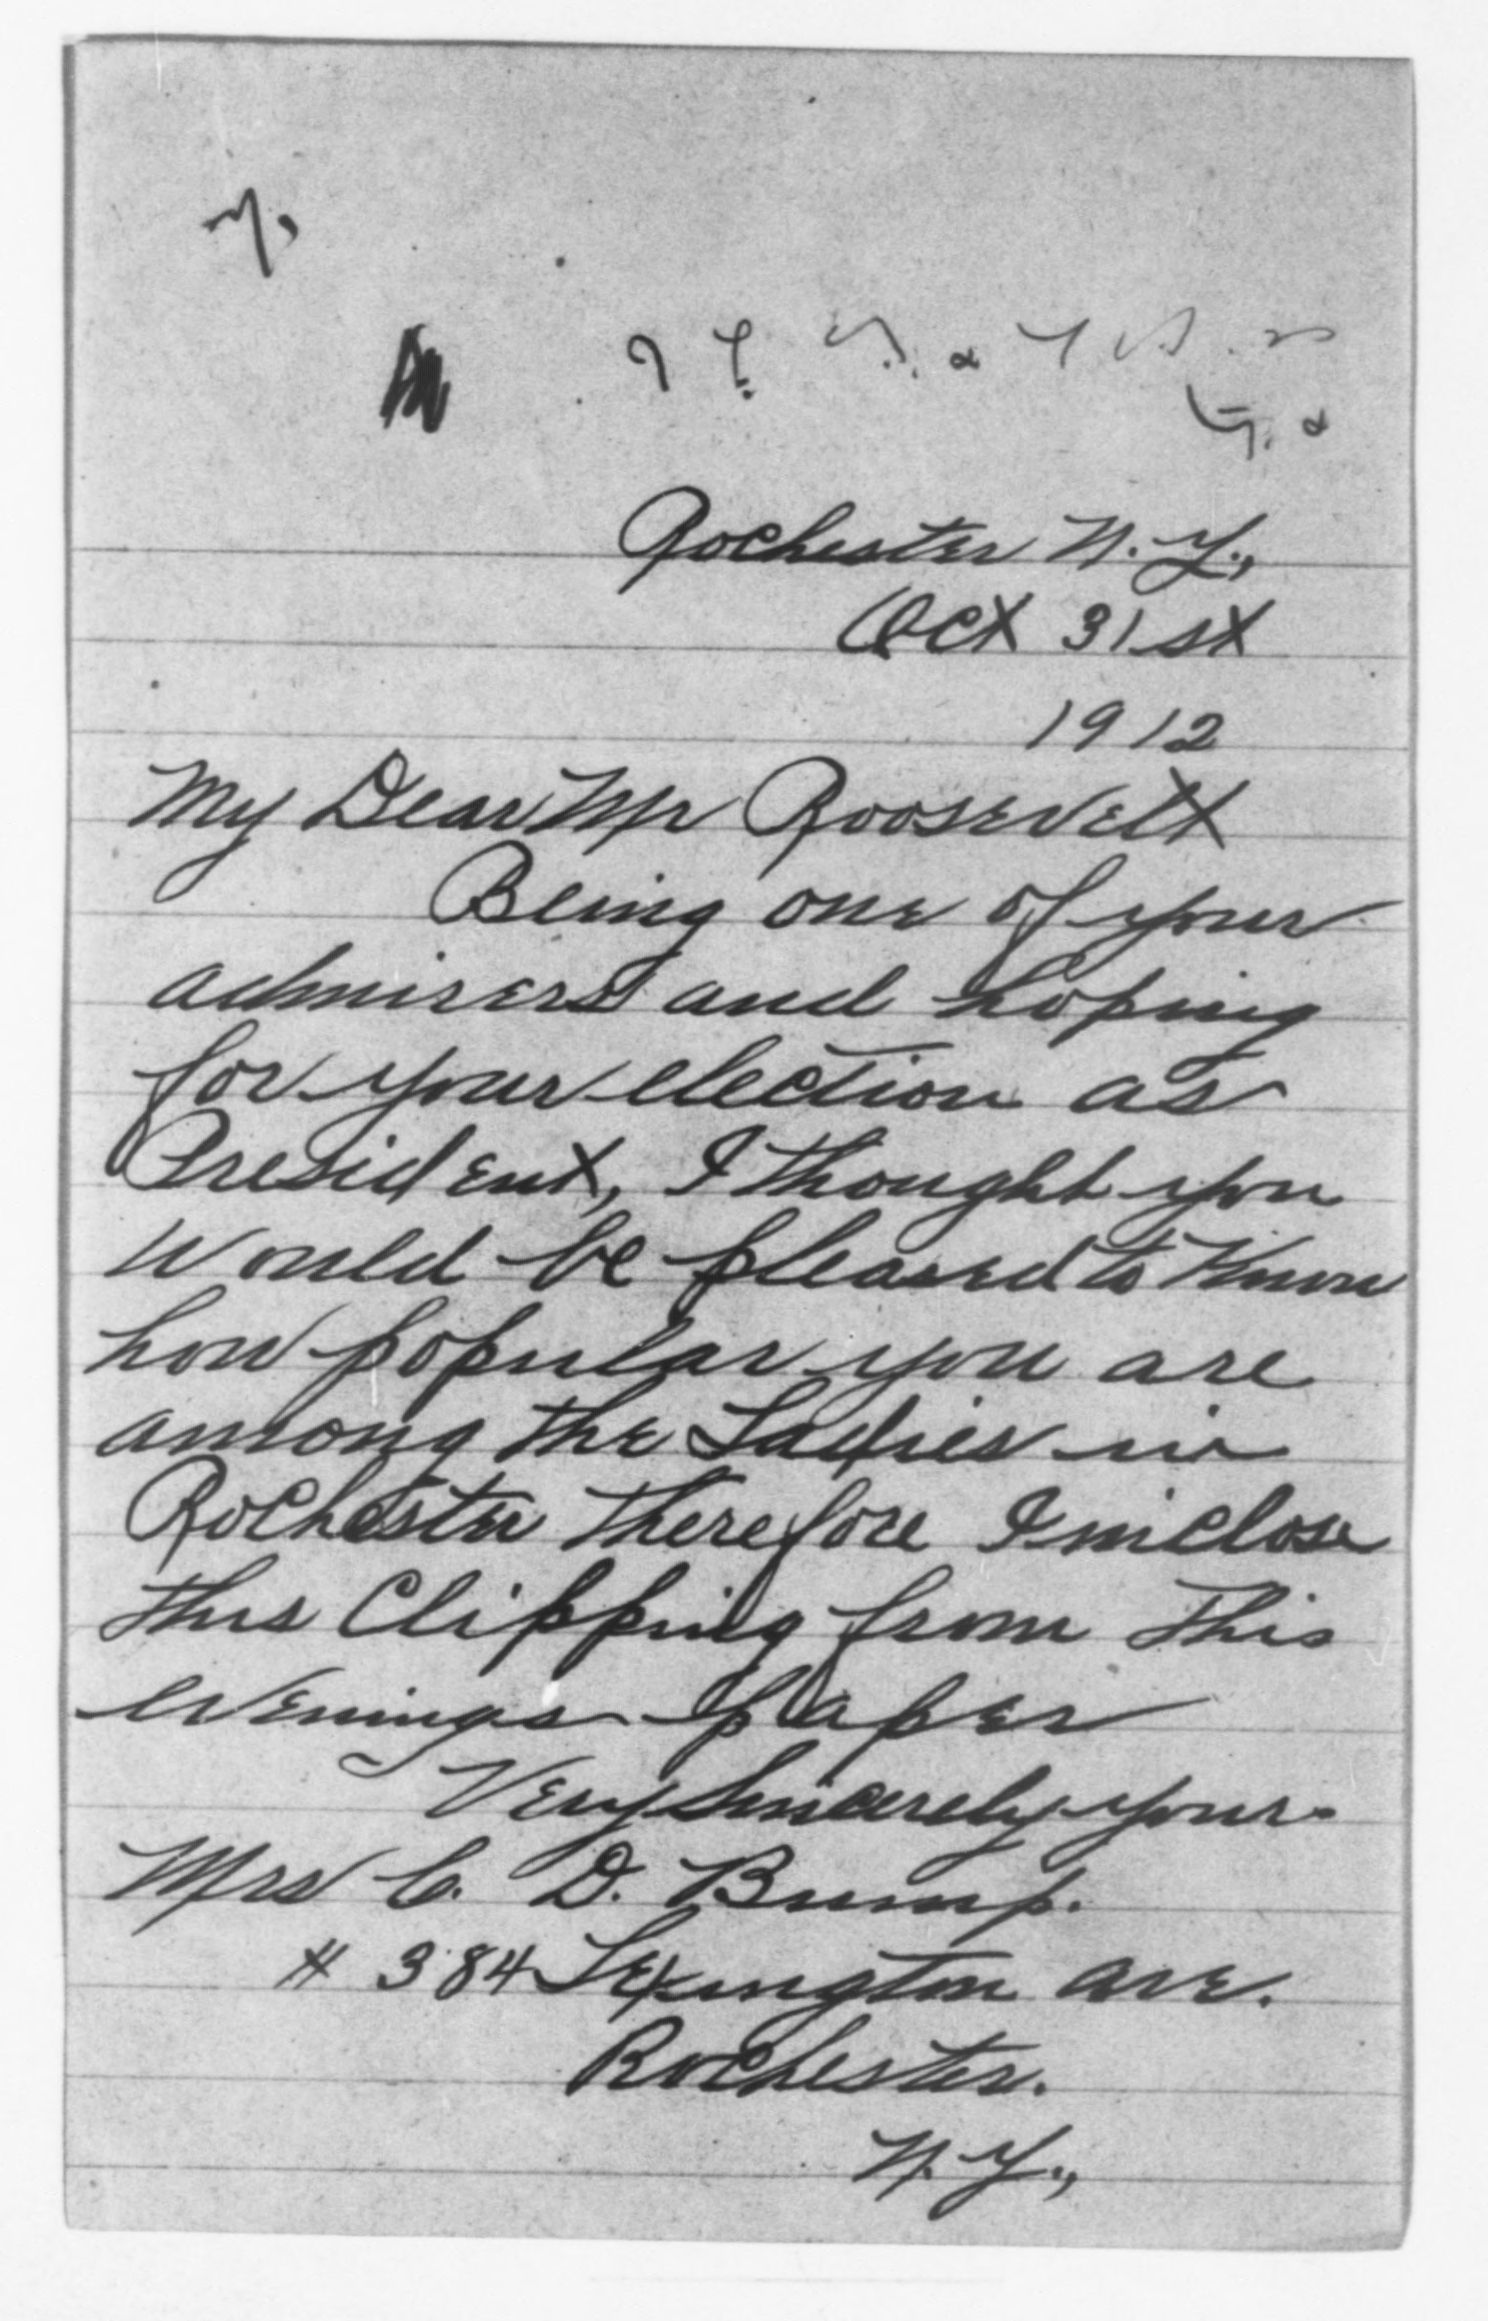 Rochester N.Y.,
Oct 31st
1912
My Dear Mr Roosevelt
Being one of your
admirers and hoping
for your election as
President, I thought you
would be pleased to know
how popular you are
among the Ladies in
Rochester therefore I inclose
this Clipping from this
evenings paper
Very Sincerely yours
Mrs C. D. Bump.
# 384 Lexington ave.
Rochester.
N.Y.,